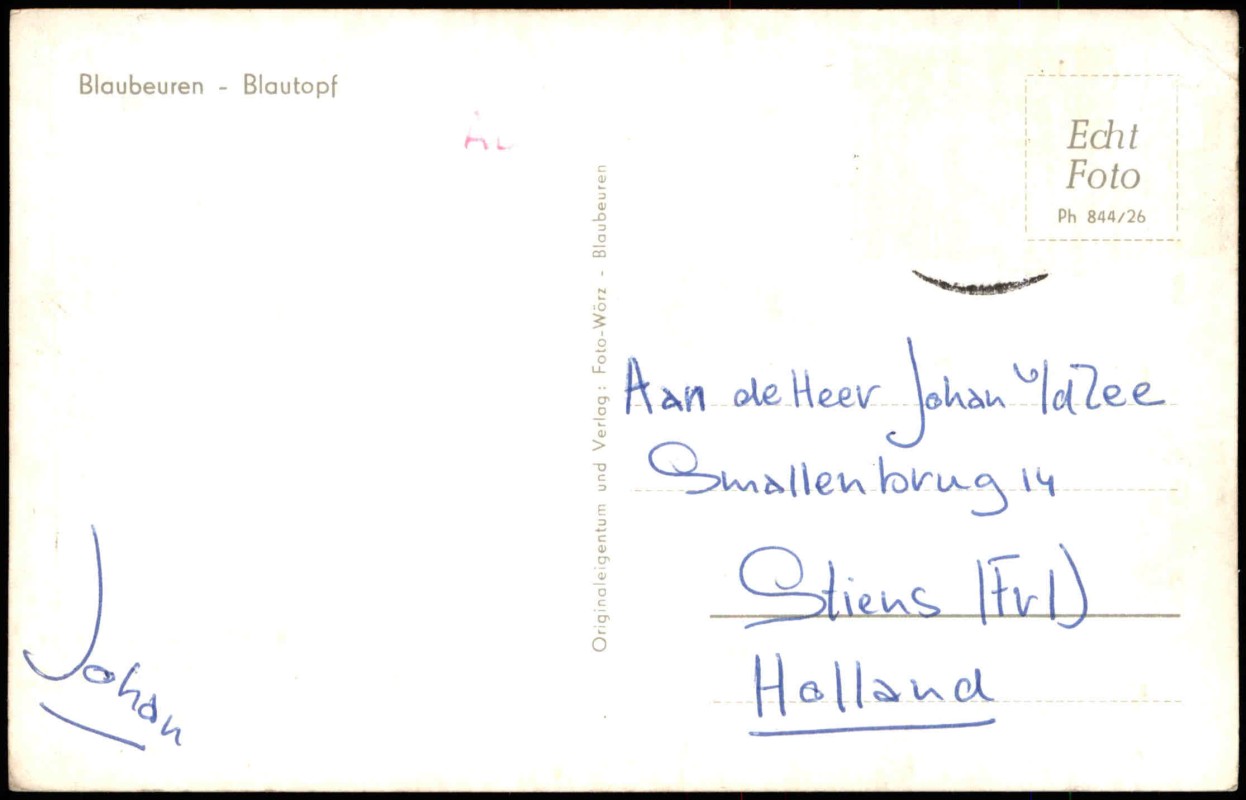 Blaubeuren - Blautopf
Echt
Foto
Ph 844/26
Originaleigentum und Verlag: Foto-Wörz - Blaubeuren
Aan de Heer Johan v/d Zee
Smallenbrug 14
Stiens (Frl)
Holland
Johan